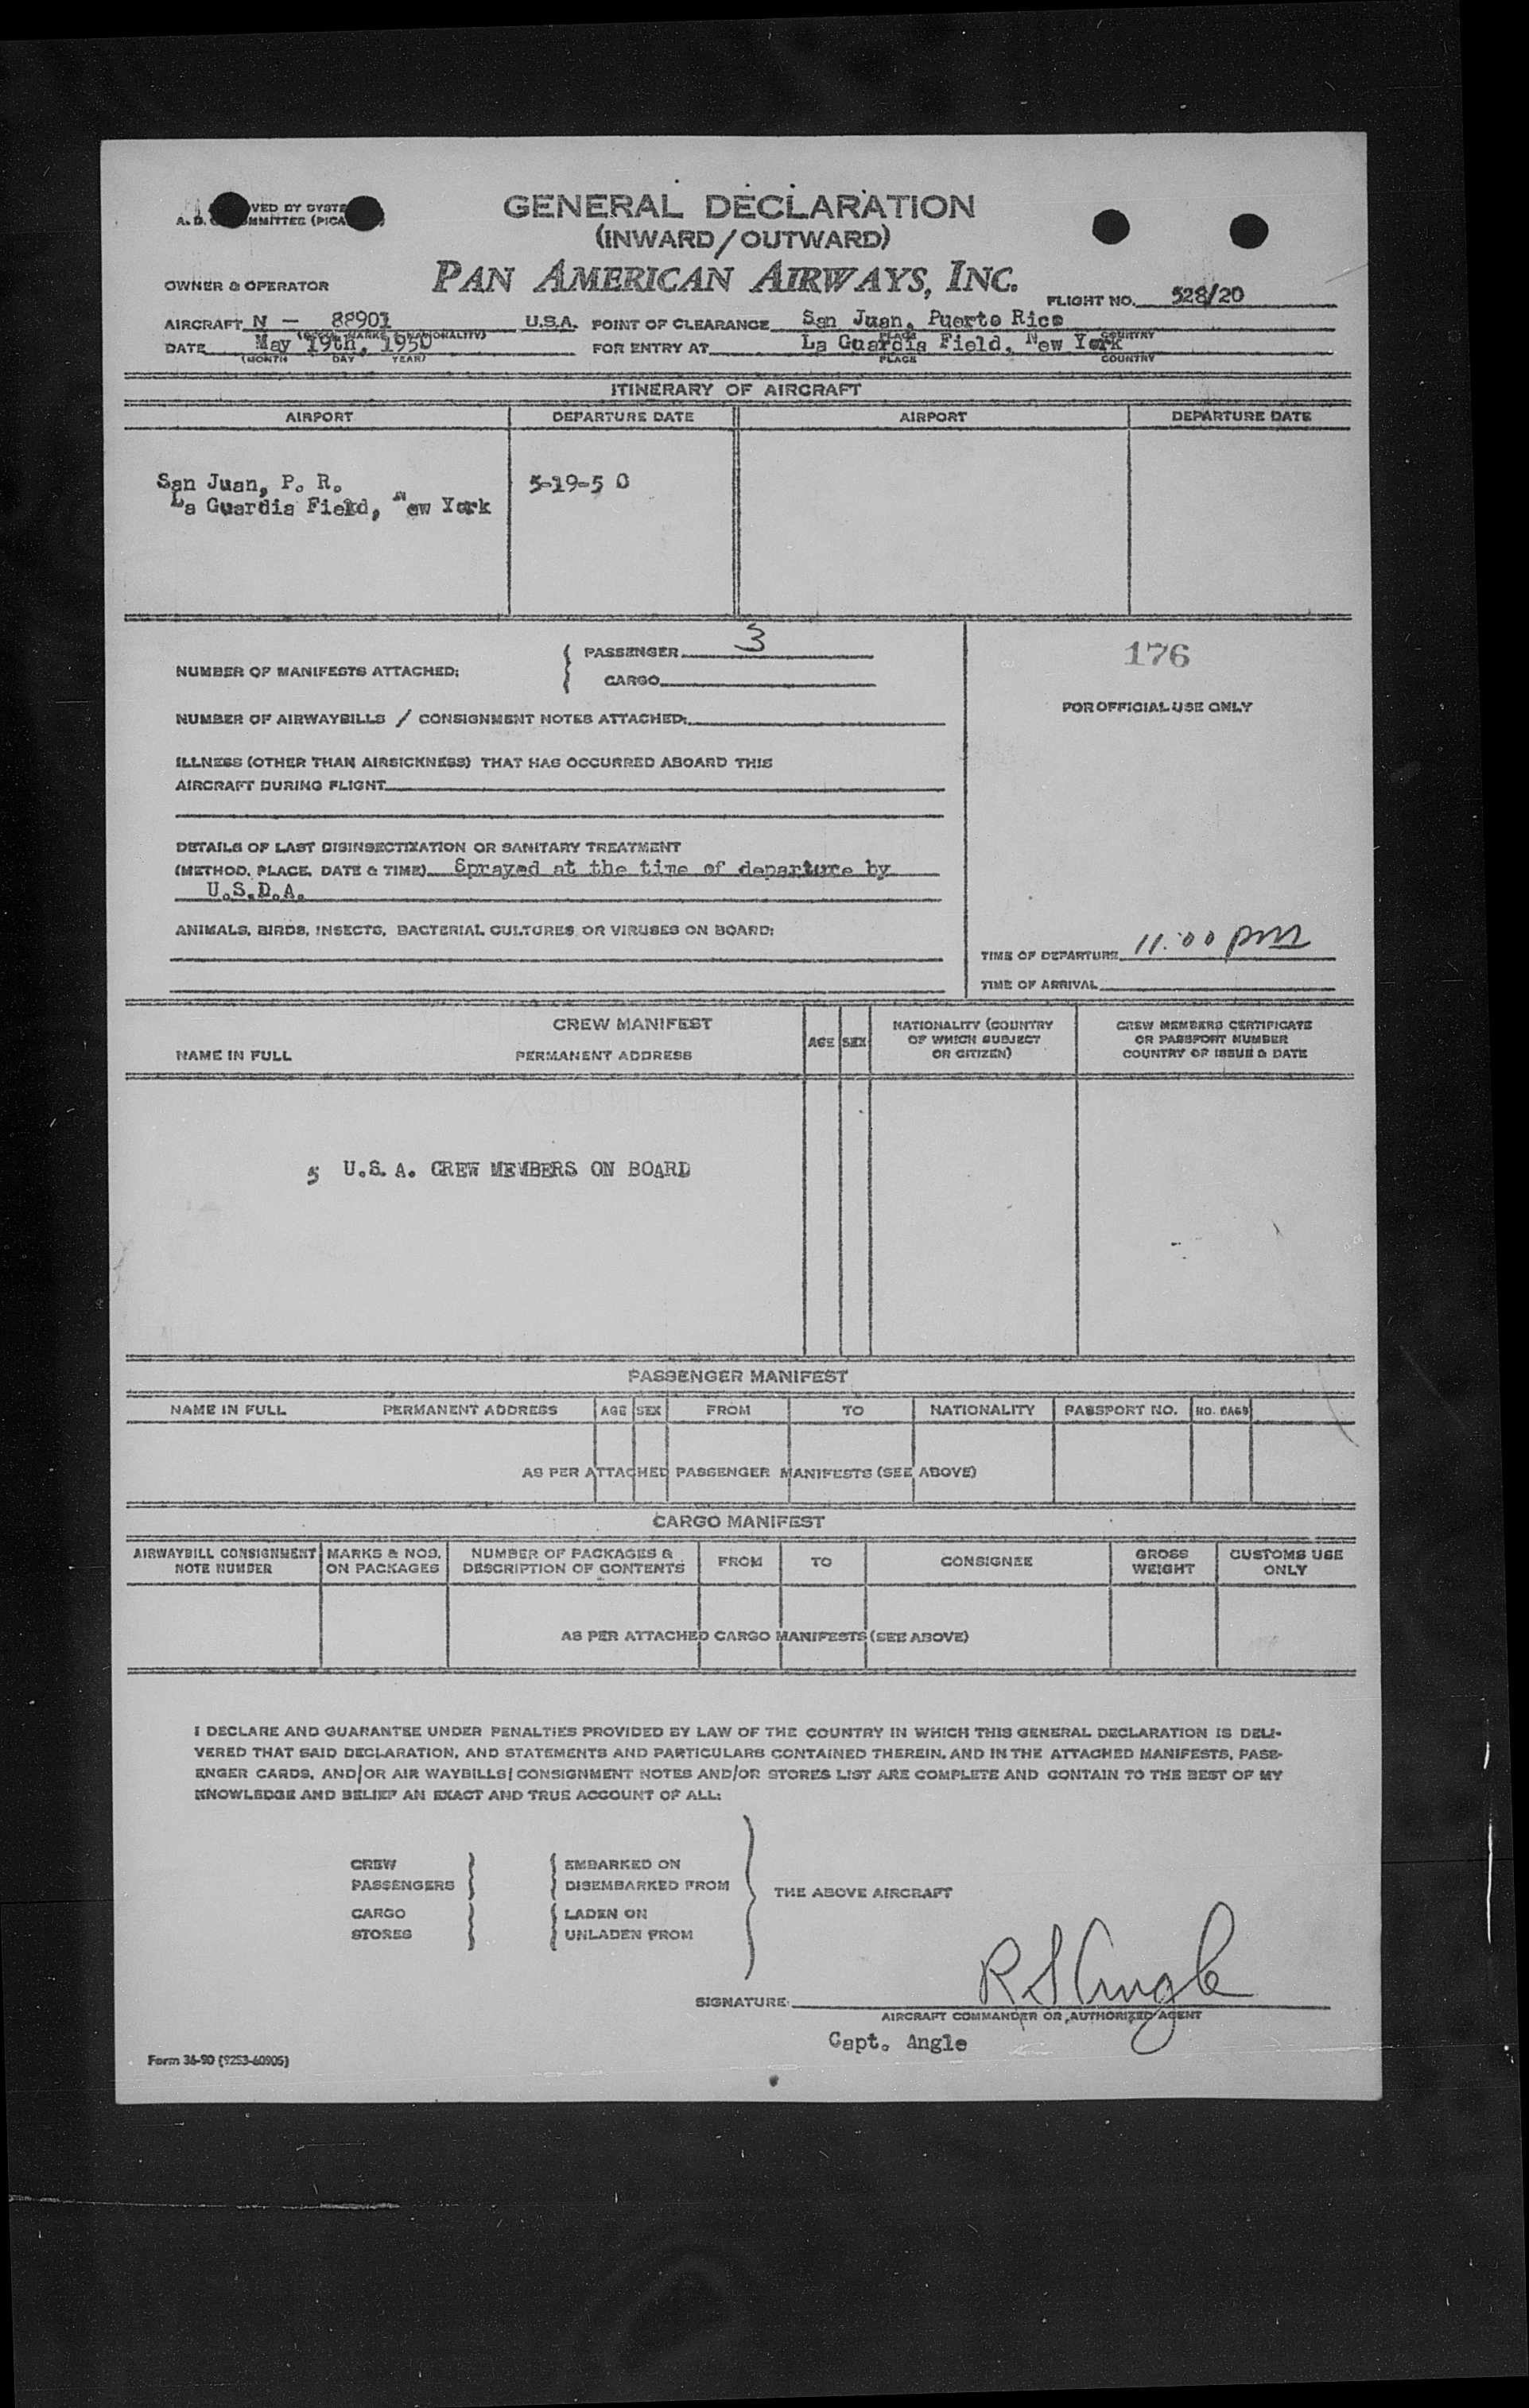 GENERAL DECLARATION
(INWARD/OUTWARD)
OWNER & OPERATOR PAN AMERICAN AIRWAYS, INC.
FLIGHT NO. 528/20
AIRCRAFT N - 88901 U.S.A. POINT OF CLEARANCE San Juan, Puerto Rico
DATE May 19th, 1950 FOR ENTRY AT La Guardia Field, New York
(MONTH DAY YEAR) PLACE COUNTRY
ITINERARY OF AIRCRAFT
AIRPORT DEPARTURE DATE AIRPORT DEPARTURE DATE
San Juan, P. R. 5-19-50
La Guardia Field, New York
176
NUMBER OF MANIFESTS ATTACHED: PASSENGER 3
CARGO
FOR OFFICIAL USE ONLY
NUMBER OF AIRWAYBILLS / CONSIGNMENT NOTES ATTACHED:
ILLNESS (OTHER THAN AIRSICKNESS) THAT HAS OCCURRED ABOARD THIS
AIRCRAFT DURING FLIGHT
DETAILS OF LAST DISINSECTIZATION OR SANITARY TREATMENT
(METHOD, PLACE, DATE & TIME) Sprayed at the time of departure by
U.S.D.A.
ANIMALS, BIRDS, INSECTS, BACTERIAL CULTURES OR VIRUSES ON BOARD:
TIME OF DEPARTURE 11:00 pm
TIME OF ARRIVAL
CREW MANIFEST
NAME IN FULL PERMANENT ADDRESS AGE SEX NATIONALITY (COUNTRY OF WHICH SUBJECT OR CITIZEN) CREW MEMBERS CERTIFICATE OR PASSPORT NUMBER COUNTRY OF ISSUE & DATE
5 U.S.A. CREW MEMBERS ON BOARD
PASSENGER MANIFEST
NAME IN FULL PERMANENT ADDRESS AGE SEX FROM TO NATIONALITY PASSPORT NO. NO. BAGS
AS PER ATTACHED PASSENGER MANIFESTS (SEE ABOVE)
CARGO MANIFEST
AIRWAYBILL CONSIGNMENT NOTE NUMBER MARKS & NOS. ON PACKAGES NUMBER OF PACKAGES & DESCRIPTION OF CONTENTS FROM TO CONSIGNEE GROSS WEIGHT CUSTOMS USE ONLY
AS PER ATTACHED CARGO MANIFESTS (SEE ABOVE)
I DECLARE AND GUARANTEE UNDER PENALTIES PROVIDED BY LAW OF THE COUNTRY IN WHICH THIS GENERAL DECLARATION IS DELI-
VERED THAT SAID DECLARATION, AND STATEMENTS AND PARTICULARS CONTAINED THEREIN, AND IN THE ATTACHED MANIFESTS, PASS-
ENGER CARDS, AND/OR AIR WAYBILLS/CONSIGNMENT NOTES AND/OR STORES LIST ARE COMPLETE AND CONTAIN TO THE BEST OF MY
KNOWLEDGE AND BELIEF AN EXACT AND TRUE ACCOUNT OF ALL:
CREW EMBARKED ON
PASSENGERS DISEMBARKED FROM THE ABOVE AIRCRAFT
CARGO LADEN ON
STORES UNLADEN FROM
SIGNATURE: R S Angle
AIRCRAFT COMMANDER OR AUTHORIZED AGENT
Capt. Angle
Form 36-90 (9253-60905)